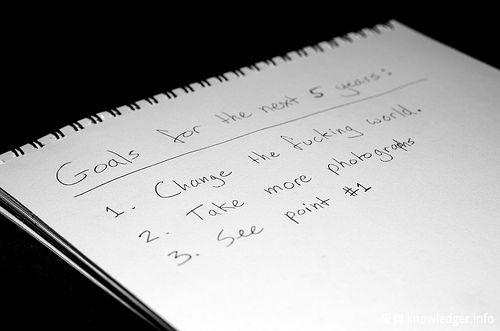 Goals for the next 5 years:
1. Change the fucking world.
2. Take more photographs
3. See point #1
knowledger.info